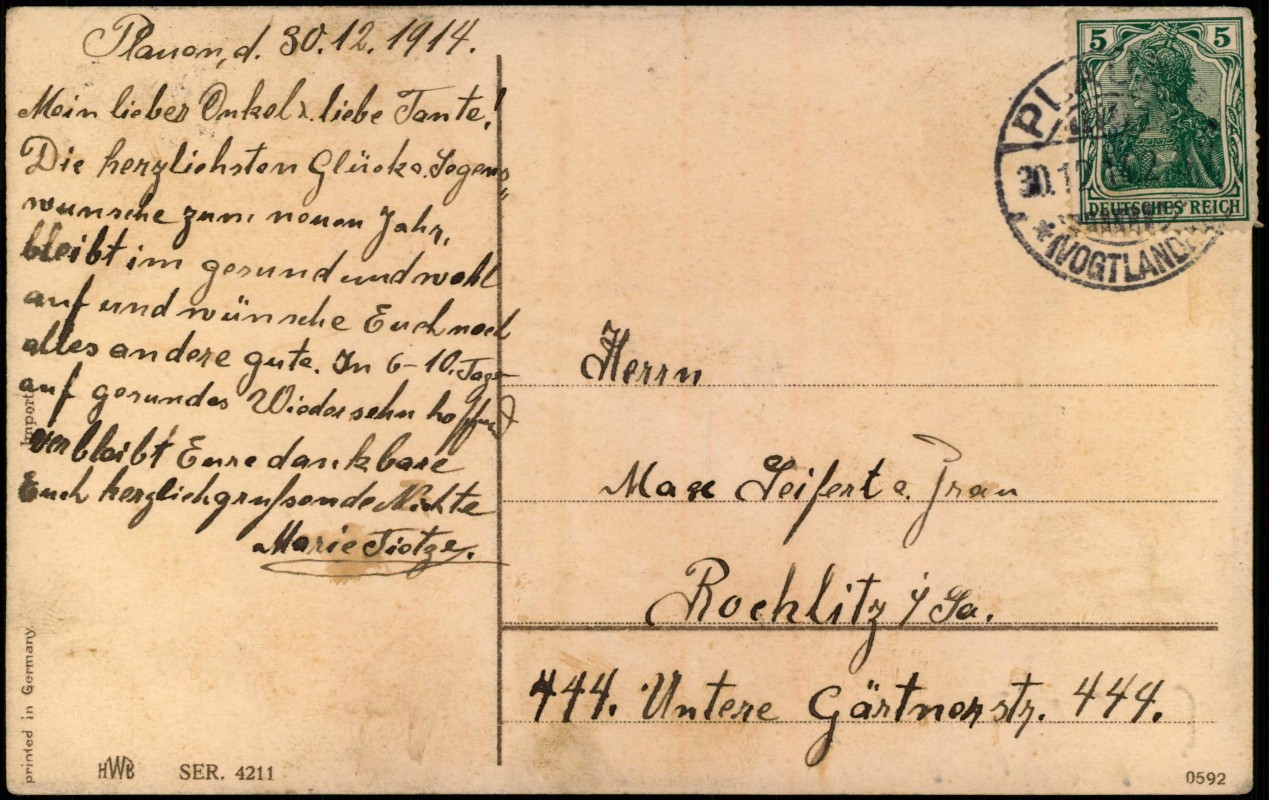 Plauen, d. 30.12.1914.
Mein lieber Onkel u. liebe Tante!
Die herzlichsten Glück u. Segens„
wünsche zum neuen Jahr,
bleibt im gesund und wohl
auf und wünsche Euch noch
alles andere gute. In 6-10. Tage
auf gesundes Wiedersehn hoffend
verbleibt Eure dankbare
Euch herzlichgrußende Nichte
Marie Tietze.
Import
printed in Germany
HWB SER. 4211
5 5
DEUTSCHES REICH
30.12
*(VOGTLAND)
Herrn
Max Seifert u. Frau
Rochlitz i/Sa.
444. Untere Gärtnerstr. 444.
0592